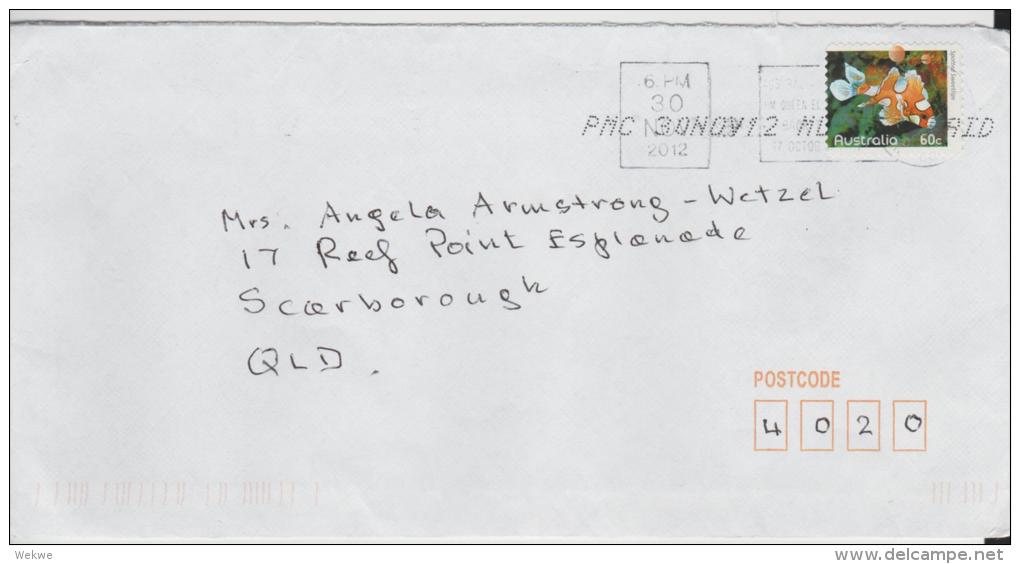 6 PM
30
NOV
2012
PMC 30NOV12
Australia 60c
Mrs. Angela Armstrong-Wetzel
17 Reef Point Esplanade
Scarborough
QLD.
POSTCODE
4 0 2 0
Wekwe
www.delcampe.net